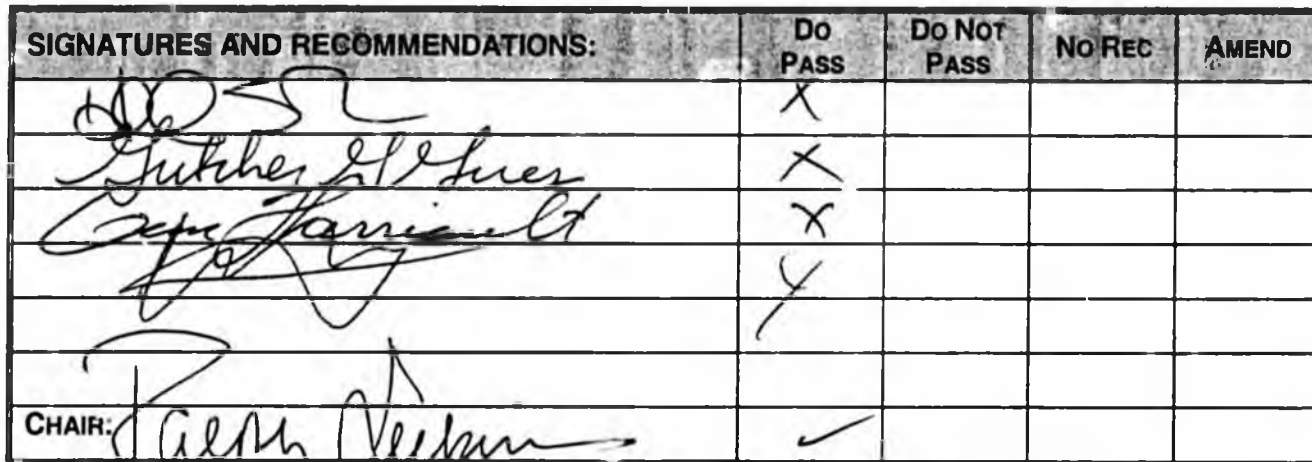 SIGNATURES AND RECOMMENDATIONS: DO PASS DO NOT PASS NO REC AMEND
X
X
Gene Therriault X
X
CHAIR: Ralph Seekins ✓